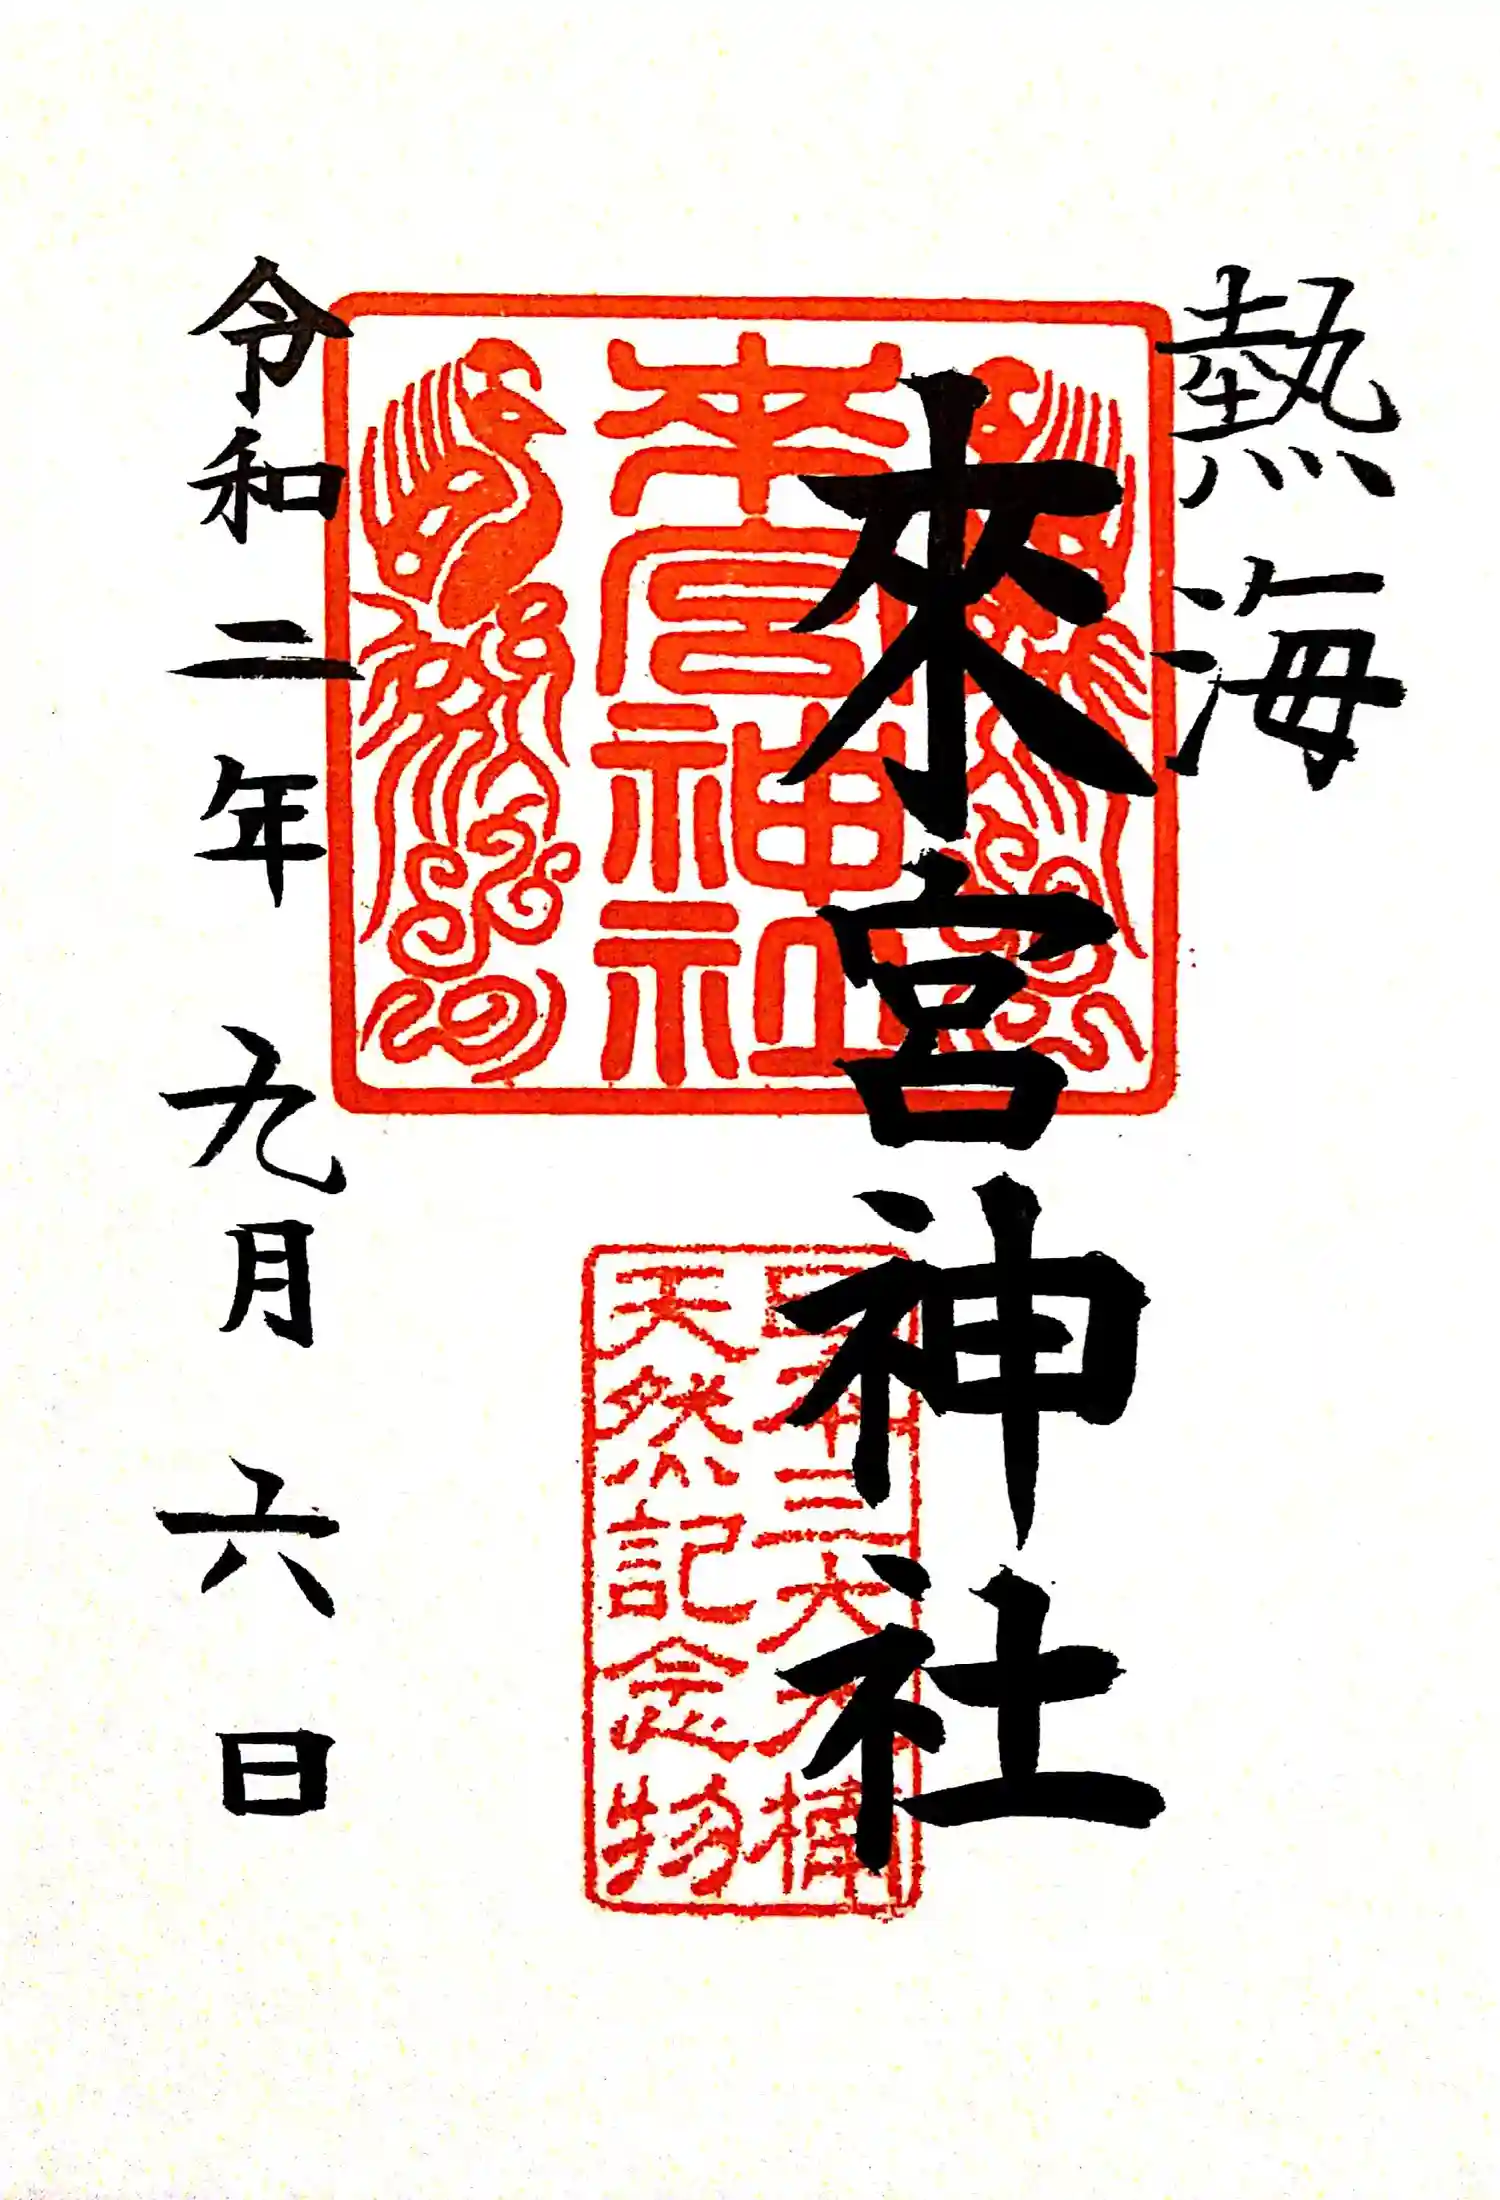 熱海
來宮神社
來宮神社
日本三大大楠
天然記念物
令和二年九月六日